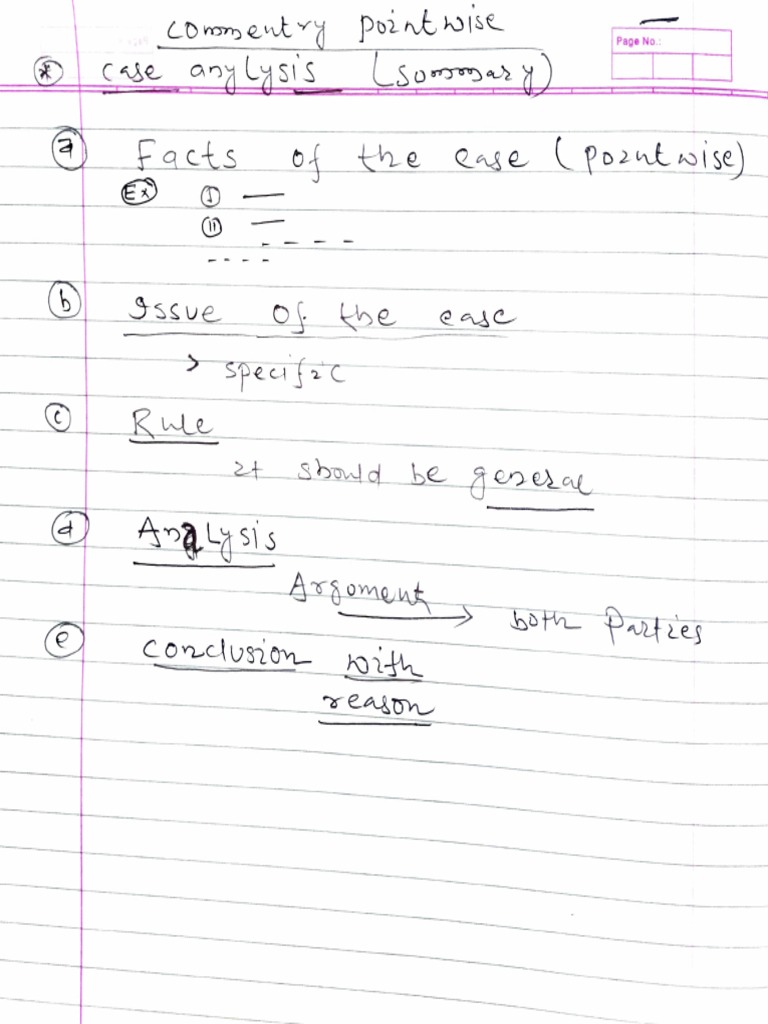 commentry pointwise
Page No.:
* case anylysis (Sommary)
a Facts of the case (pointwise)
Ex I —
II —
b Issue of the case
> specific
c Rule
It should be general
d Analysis
Argoment → both Parties
e conclusion with
reason